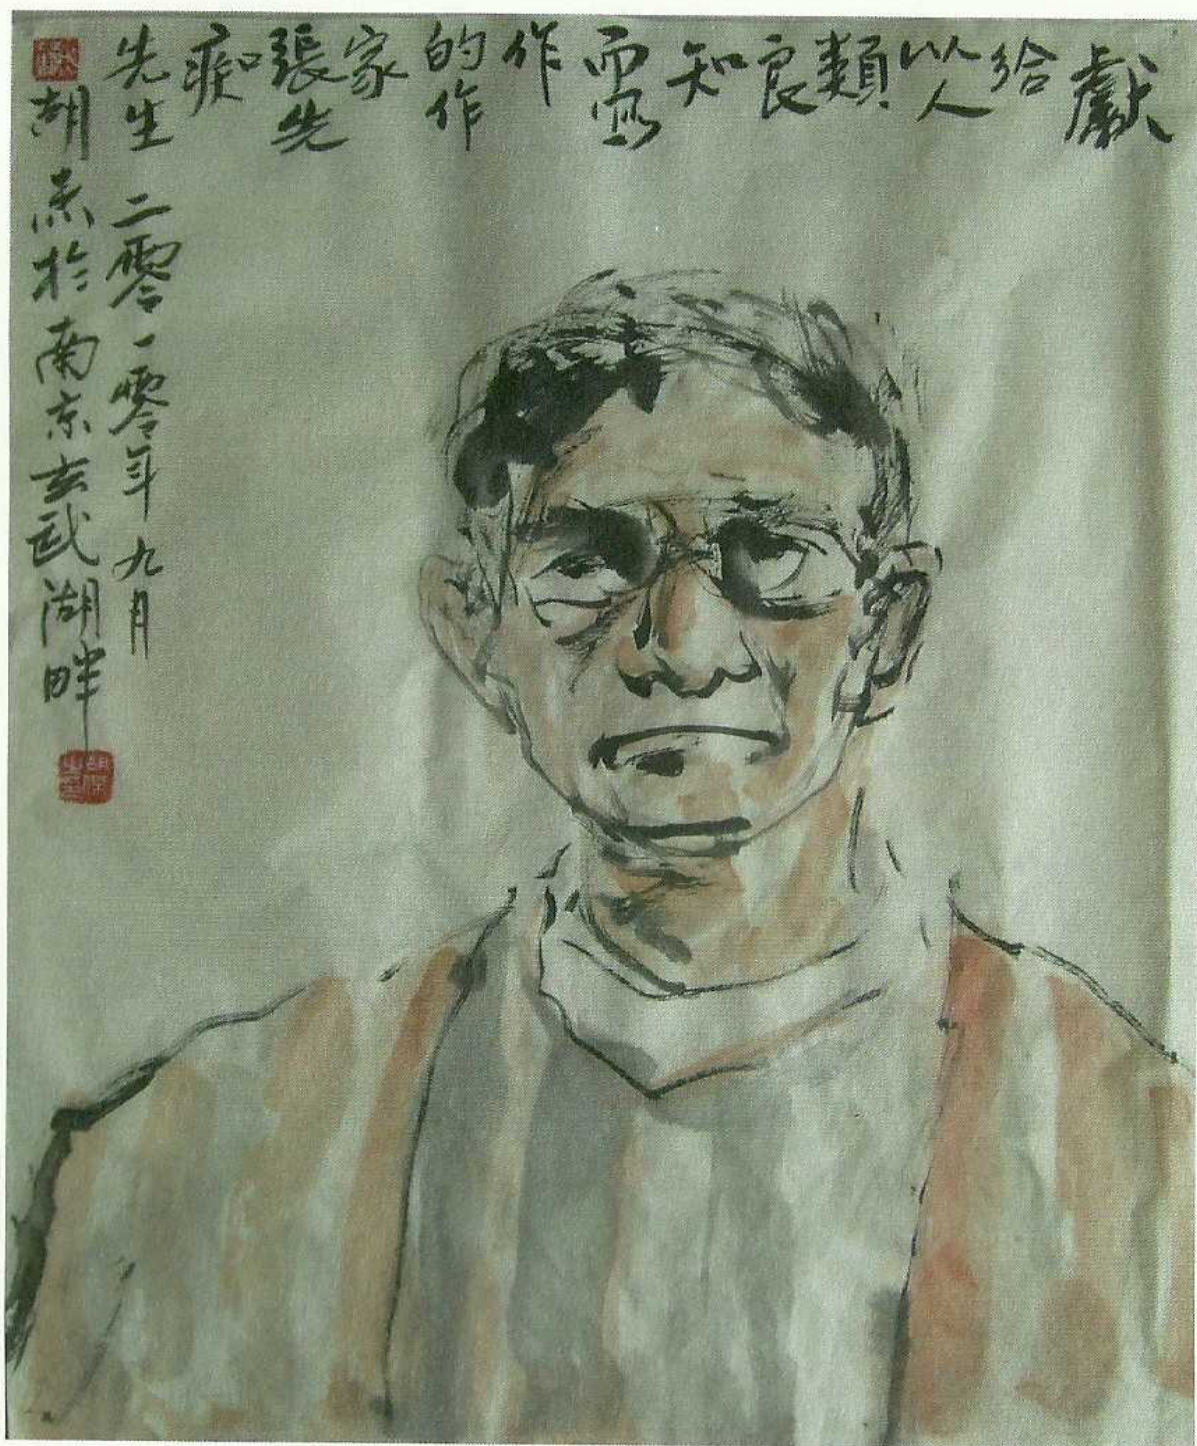 獻
給
以人
類
良
知
而寫
作
的作
家
張先
痴
先生 二零一零年九月
胡杰於南京玄武湖畔